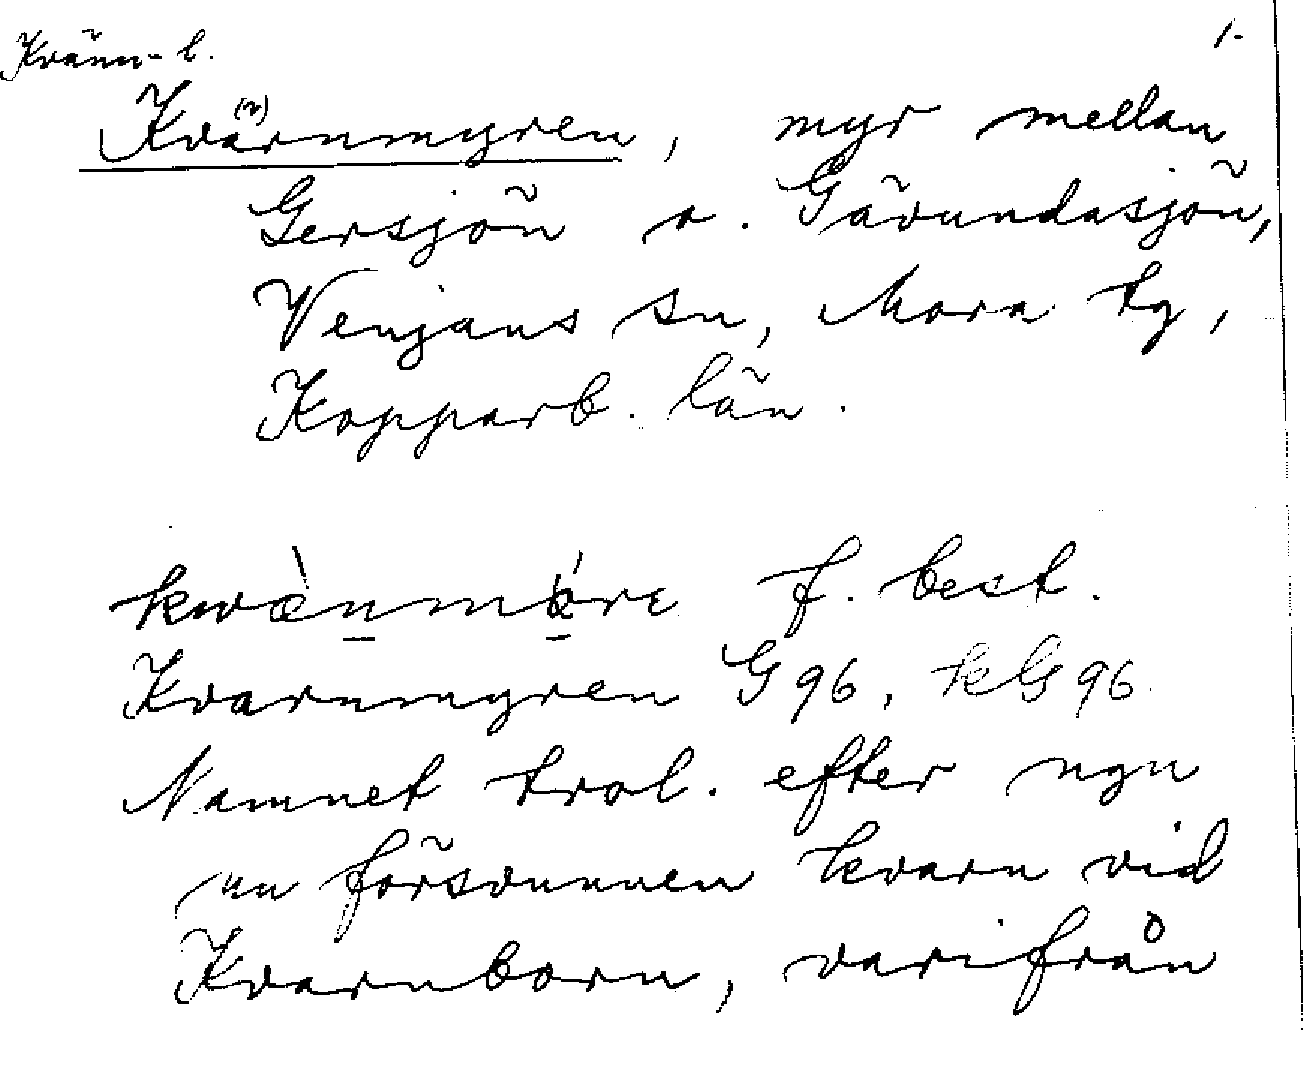 Kvänn- l.
1.
Kvä(n)rnmyren, myr mellan
Gersjön o. Gävundasjön,
Venjans sn, Mora tg,
Kopparb. län.
f. best.
Kvarnmyren G 96, kG 96.
Namnet trol. efter ngn
nu försvunnen kvarn vid
Kvarnborn, varifrån